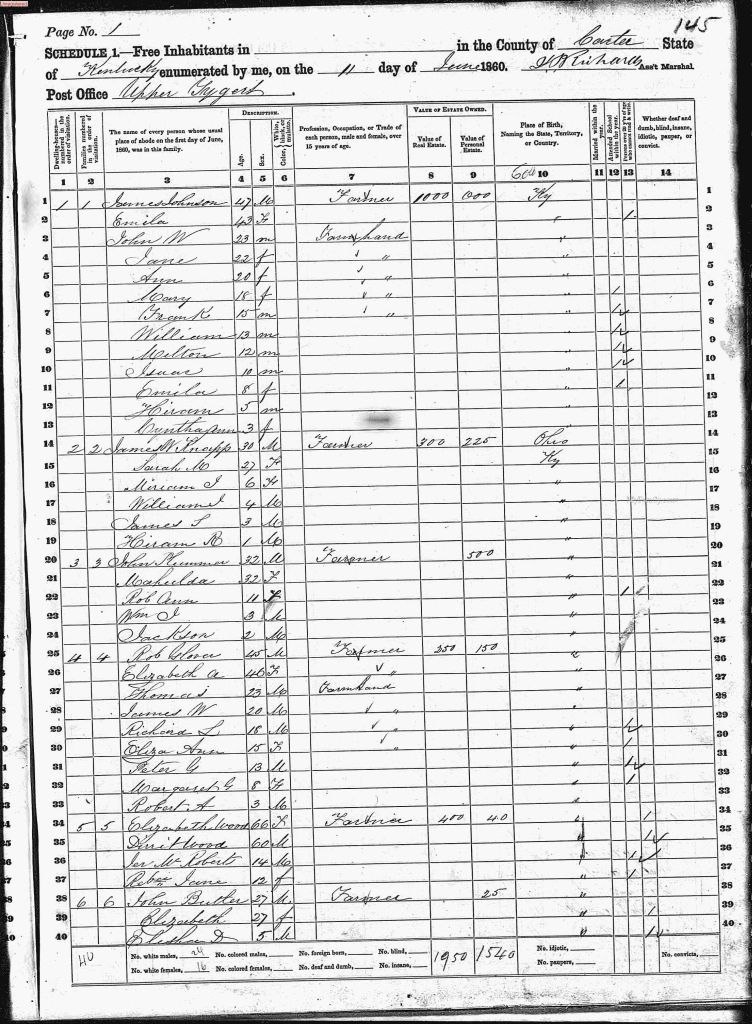 145
Page No. 1
SCHEDULE 1.—Free Inhabitants in in the County of Carter State
of Kentucky enumerated by me, on the 11 day of June 1860. Ass't Marshal.
Post Office Upper Tygert.
Dwelling-houses numbered in the order of visitation. Families numbered in the order of visitation. The name of every person whose usual place of abode on the first day of June, 1860, was in this family. DESCRIPTION. Age. Sex. Color, White, black, or mulatto. Profession, Occupation, or Trade of each person, male and female, over 15 years of age. VALUE OF ESTATE OWNED. Value of Real Estate. Value of Personal Estate. Place of Birth, Naming the State, Territory, or Country. Married within the year. Attended School within the year. Persons over 20 y'rs of age who cannot read & write. Whether deaf and dumb, blind, insane, idiotic, pauper, or convict.
1 2 3 4 5 6 7 8 9 10 11 12 13 14
1 1 1 James Johnson 47 M Farmer 1000 600 Ky 1
2 Emila 43 F " 1 2
3 John W 23 m Farm hand " 3
4 Jane 22 f " " 4
5 Ann 20 f " " 5
6 Mary 18 f " " 1 6
7 Frank 15 m " " 1 7
8 William 13 m " 1 8
9 Melton 12 m " 1 9
10 Isaac 10 m " 1 10
11 Emila 8 f " 1 11
12 Hiram 5 m " 12
13 Cyntha Ann 3 f " 13
14 2 2 James W Knapp 30 M Farmer 300 225 Ohio 14
15 Sarah M 27 F Ky 15
16 Miriam J 6 F " 16
17 William J 4 M " 17
18 James S 3 M " 18
19 Hiram R 1 M " 19
20 3 3 John 32 M Farmer 500 " 20
21 32 F " 21
22 Rob Ann 11 F " 1 22
23 Wm J 3 M " 23
24 Jackson 2 M " 24
25 4 4 Rob Glover 45 M Farmer 250 150 " 25
26 Elizabeth A 46 F " " 26
27 Thomas 23 M Farm hand " 27
28 James W 20 M " " 28
29 Richard S 18 M " " 1 29
30 Eliza Ann 15 F " 1 30
31 Peter G 13 M " 1 31
32 Margaret G 8 F " 1 32
33 Robert A 3 M " 33
34 5 5 Elizabeth Wood 66 F Farmer 400 40 " 1 34
35 Wood 60 M " 1 35
36 Mc Robert 14 M " 1 36
37 Jane 12 f " 1 37
38 6 6 John Butler 27 M Farmer 25 " 38
39 Elizabeth 27 f " 1 39
40 Elisha D 5 M " 1 40
40 No. white males, 24 No. colored males, No. foreign born, No. blind, 1950 1540 No. idiotic, No. convicts,
No. white females, 16 No. colored females, No. deaf and dumb, No. insane, No. paupers,